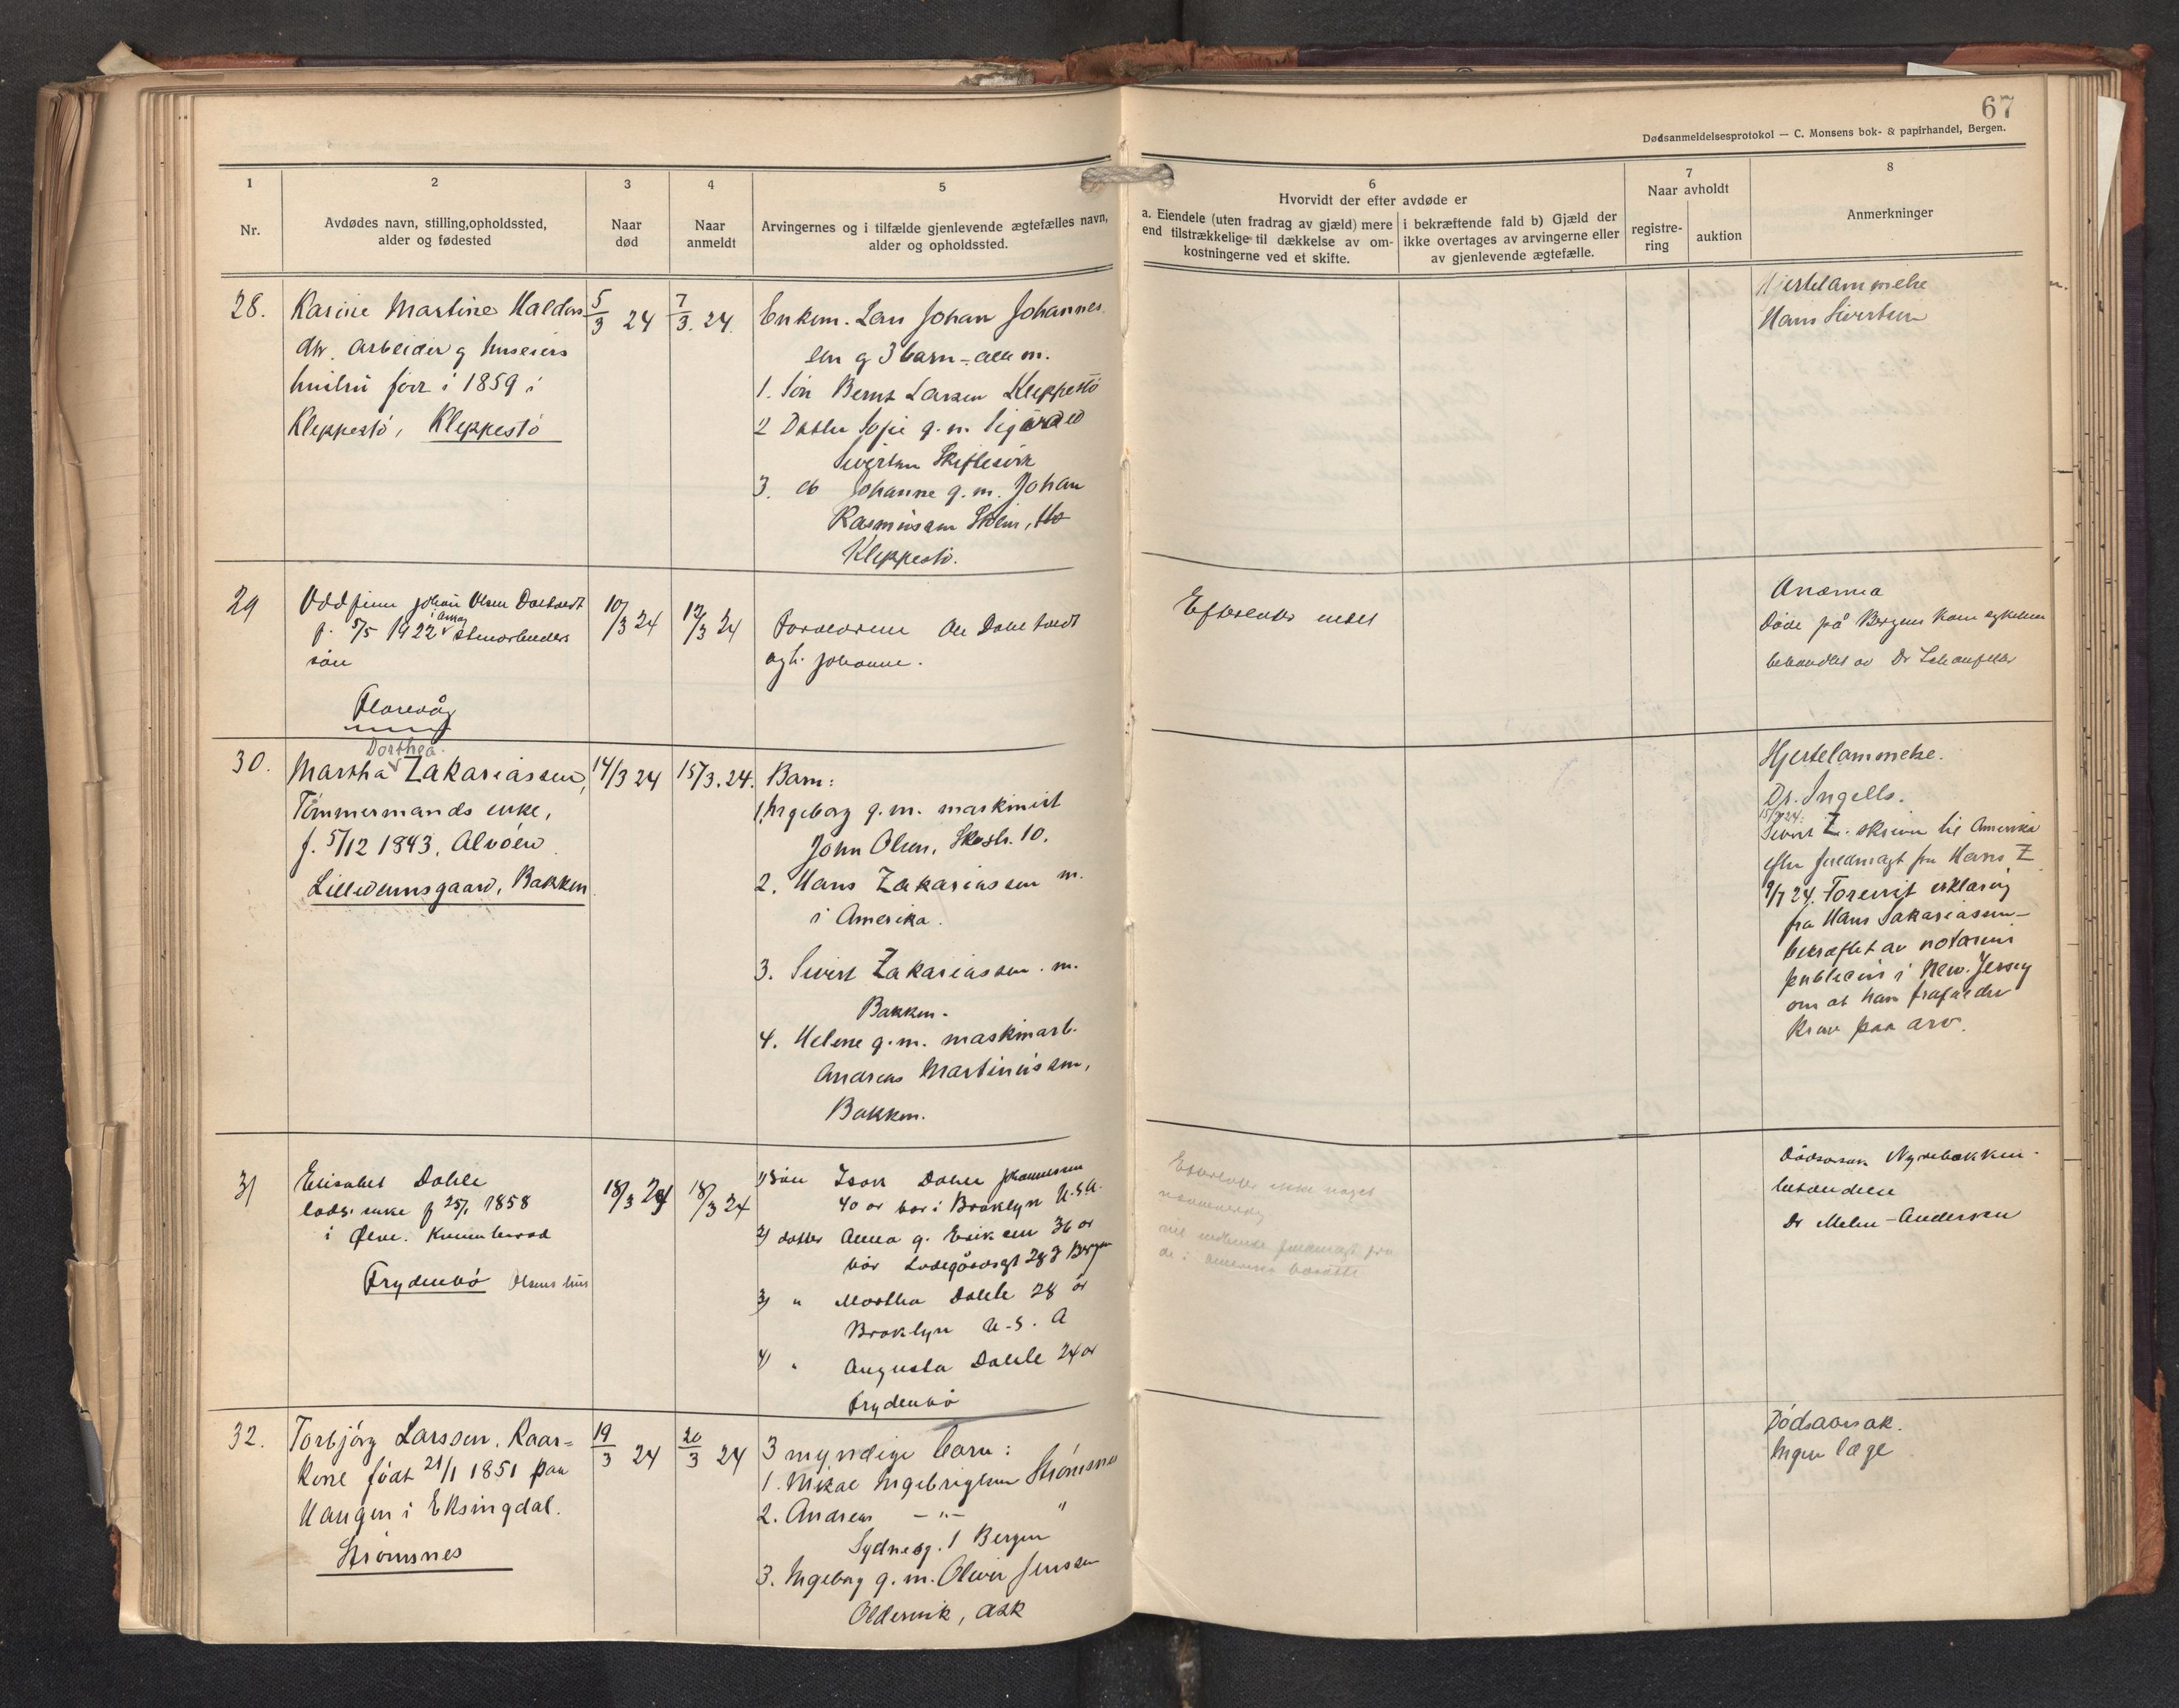 67
Dødsanmeldelsesprotokol — C. Monsens bok- & papirhandel, Bergen.
1
Nr.
2
Avdødes navn, stilling, opholdssted,
alder og fødested
3
Naar
død
4
Naar
anmeldt
5
Arvingernes og i tilfælde gjenlevende ægtefælles navn,
alder og opholdssted.
6
Hvorvidt der efter avdøde er
a. Eiendele (uten fradrag av gjæld) mere
end tilstrækkelige til dækkelse av om-
kostningerne ved et skifte.
i bekræftende fald b) Gjæld der
ikke overtages av arvingerne eller
av gjenlevende ægtefælle.
7
Naar avholdt
registre-
ring
auktion
8
Anmerkninger
28.
Karine Martine Haldors
dtr. arbeider g huseiers
hustru född i 1859 i
Kleppestö, Kleppestö
5/3 24
7/3. 24.
Enkem. Lars Johan Johannes
sen g 3 barn - alle m.
1. Sön Bernt Larsen Kleppestö
2 Datter Sofie g. m. Sigvald
Sivertsen Skiftesvik
3. do Johanne g. m. Johan
Rasmussen
Kleppestö.
Hjertelammelse
Hans Sivertsen
29
Oddfinn Johan Olsen Dalstvedt
f. 5/5 1922 i Askøy stenarbeiders
sön
Florevåg
10/3 24
12/3 24
Forældrene Ole Dalstvedt
og h. Johanne.
Efterlater intet
Anæmia
Døde på Bergens Kom sykehus
behandlet av Dr
30.
Martha Dorthea Zakariassen,
Tömmermands enke,
f. 5/12 1843, Alvöen
Lillevernsgaard, Bakken
14/3 24
15/3. 24.
Barn:
1. Ingeborg g. m. maskinist
John Olsen, Skostr. 10.
2. Hans Zakariassen m.
i Amerika.
3. Sivert Zakariassen. m.
Bakken.
4. Helene g. m. maskinarb.
Andreas Martinussen,
Bakken.
Hjertelammelse.
Dr. Ingells.
15/3 24.
Sivert Z. skriver til Amerika
efter fuldmagt fra Hans Z
9/7 24. Forevist erklæring
fra Hans Sakariassen -
bekræftet av notarius
publicus i New. Jersey
om at han frafalder
krav paa arv.
31
Elisabet Dahle
lods. enke f 25/1 1858
i Ølve. Kvinnherad
Frydenbö Olsens hus
18/3 24
18/3 24
1) Sön Isak Dahle Johannessen
40 år bor i Broklyn U.S.A.
2) datter Anna g. Eriksen 36 år
bor Ladegårdsgt 28 3 Bergen
3) " Martha Dahle 28 år
Broklyn U.S.A
4) " Augusta Dahle 24 år
Frydenbö
Efterlater ikke noget
nevneverdig
vil indhente fuldmagt fra
de i Amerika bosatte
Dödsårsak Nyrebækken-
betændelse
Dr Mehn-Andersen
32.
Torbjörg Larssen. Kaar-
kone födt 21/1 1851 paa
Haugen i Eksingdal.
Strömsnes
19/3 24
20/3 24
3 myndige barn:
1. Mikal Ingebrigtsen Strömsnes
2. Andreas —"— "
Sydnesg. 1 Bergen
3. Ingeborg g. m. Oliver Jenssen
Oldervik, Ask
Dödsaarsak.
Ingen læge